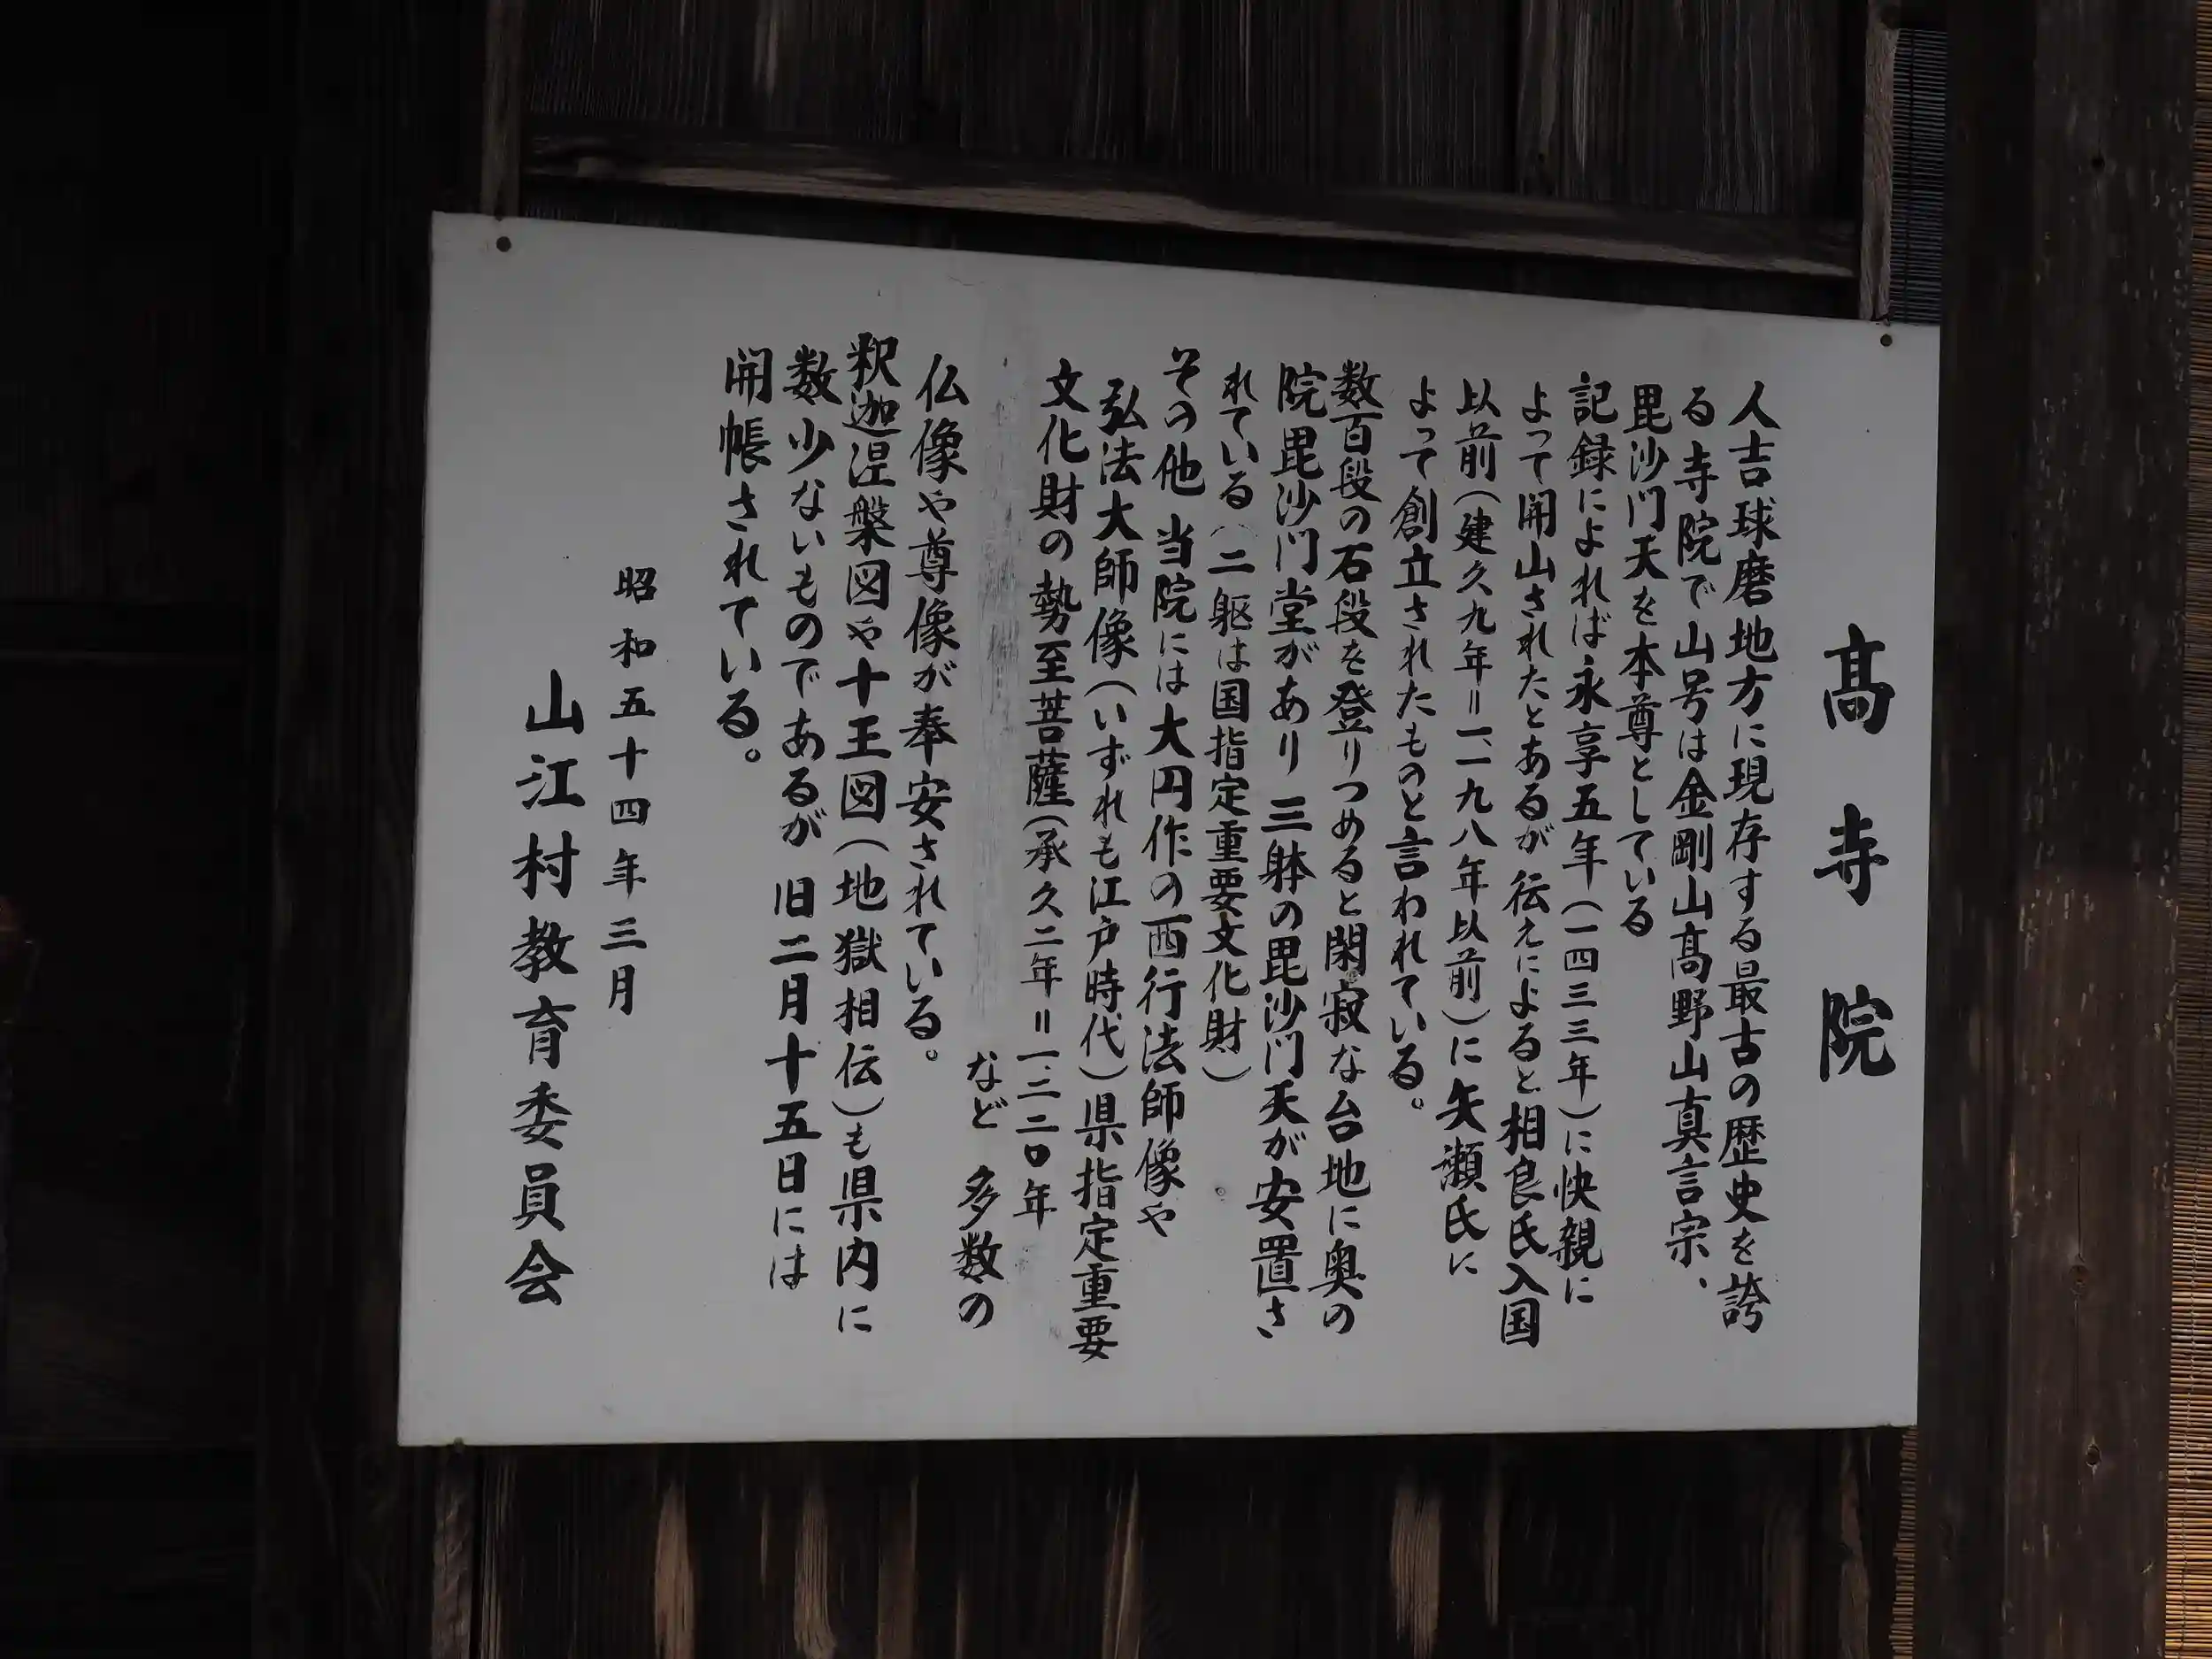 髙寺院
人吉球磨地方に現存する最古の歴史を誇
る寺院で山号は金剛山髙野山真言宗、
毘沙門天を本尊としている
記録によれば永享五年(一四三三年)に快親に
よって開山されたとあるが 伝えによると相良氏入国
以前(建久九年=一、一九八年以前)に矢瀬氏に
よって創立されたものと言われている。
数百段の石段を登りつめると閑寂な台地に奥の
院毘沙門堂があり 三躰の毘沙門天が安置さ
れている(二躯は国指定重要文化財)
その他 当院には大円作の西行法師像や
弘法大師像(いずれも江戸時代)県指定重要
文化財の勢至菩薩(承久二年=一、二二〇年
など 多数の
仏像や尊像が奉安されている。
釈迦涅槃図や十王図(地獄相伝)も県内に
数少ないものであるが 旧二月十五日には
開帳されている。
昭和五十四年三月
山江村教育委員会